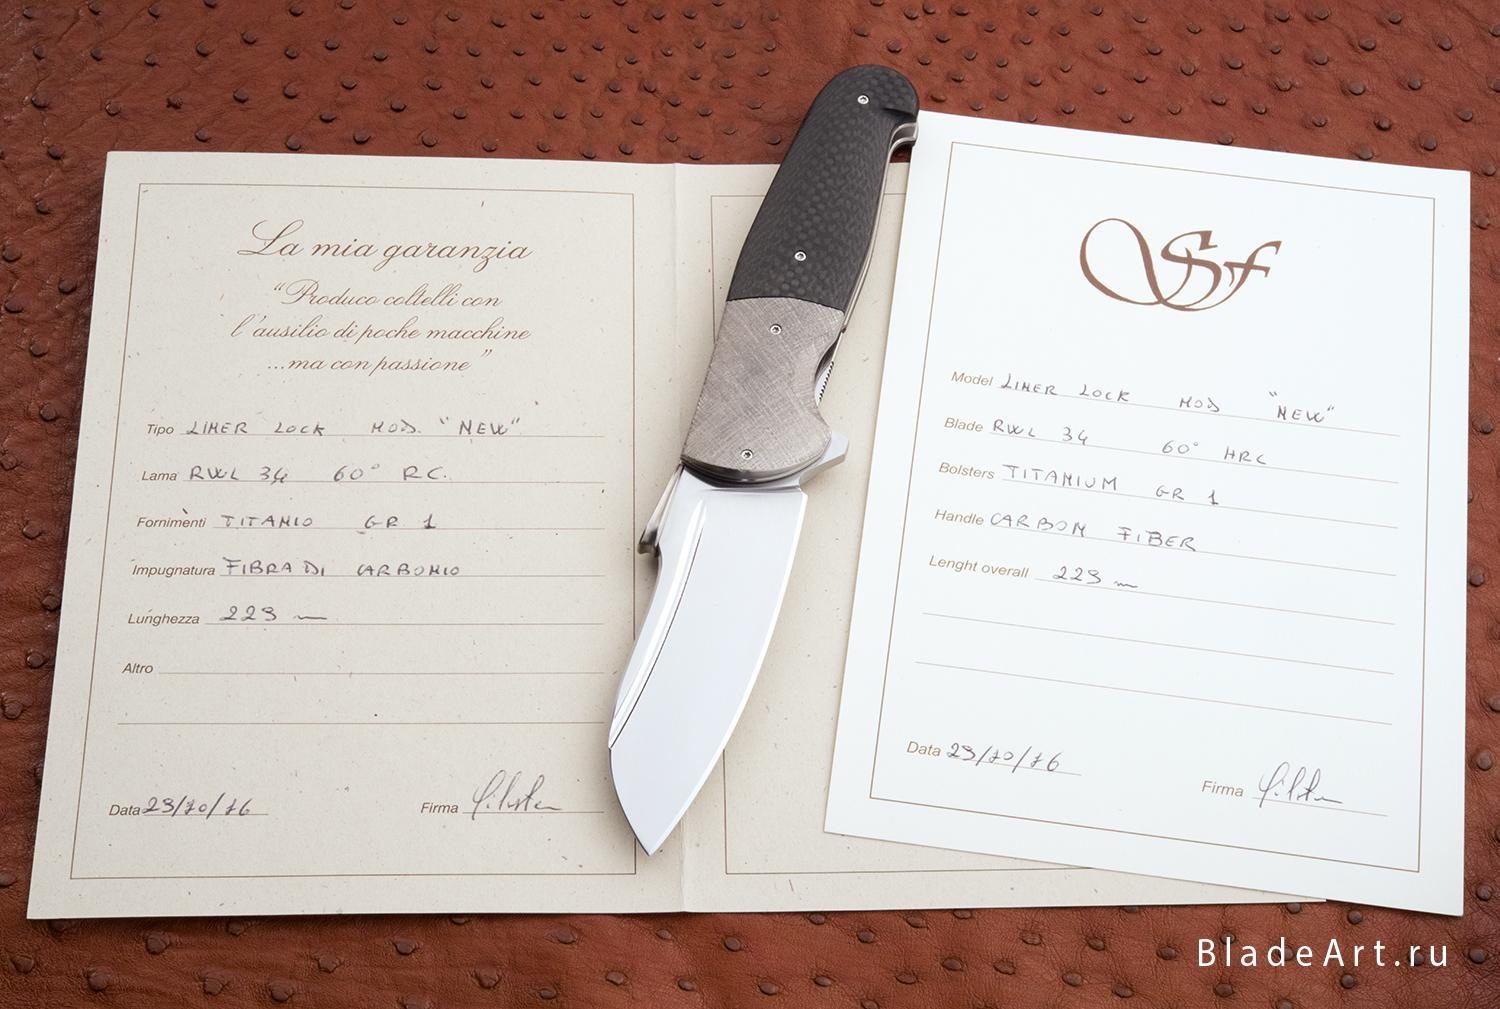 La mia garanzia
"Produco coltelli con
l'ausilio di poche macchine
...ma con passione"
Tipo LINER LOCK MOD. "NEW"
Lama RWL 34 60° RC.
Fornimenti TITANIO GR 1
Impugnatura FIBRA DI CARBONIO
Lunghezza 229 mm
Altro
Data 29/10/16 Firma
Sf
Model LINER LOCK MOD "NEW"
Blade RWL 34 60° HRC
Bolsters TITANIUM GR 1
Handle CARBON FIBER
Lenght overall 229 mm
Data 29/10/16 Firma
BladeArt.ru